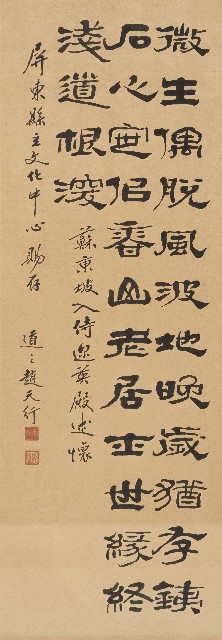 微生偶脫風波地晚歲猶存銕
石心定佀香山老居士世緣終
淺道根深
蘇東坡入侍迩英殿述懷
屏東縣立文化中心賜存 道之趙天行